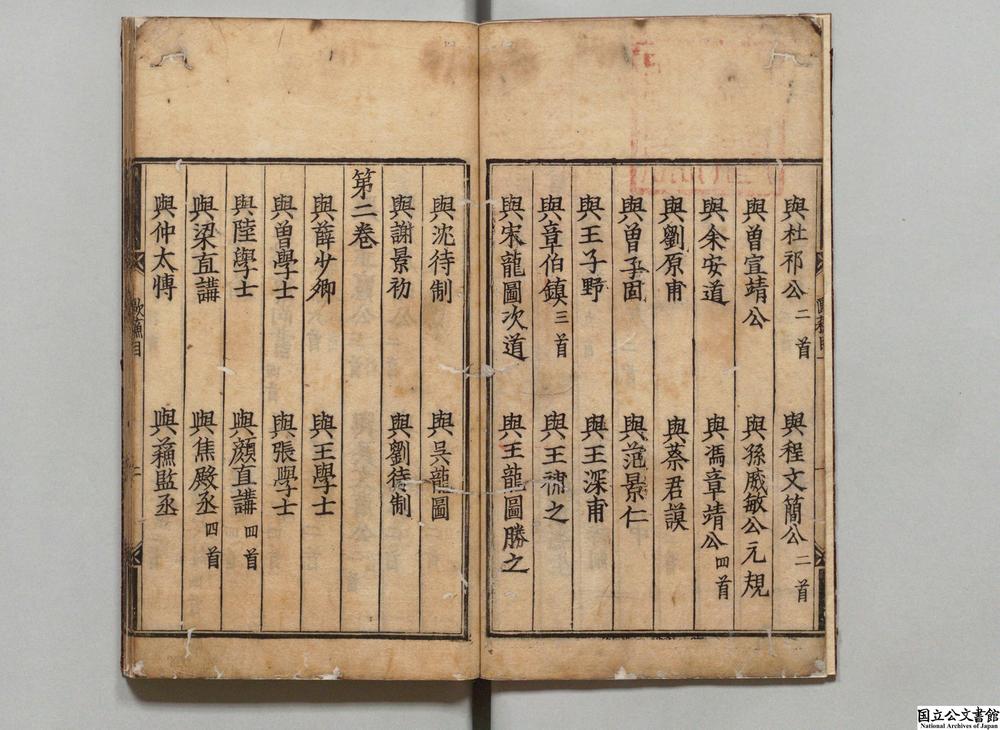 與杜祁公二首　與程文簡公二首
與曾宣靖公　與孫威敏公元規
與余安道　與馮章靖公四首
與劉原甫　與蔡君謨
與曾子固　與范景仁
與王子野　與王深甫
與章伯鎮三首　與王禠之
與宋龍圖次道　與王龍圖勝之
與沈待制　與吳龍圖
與謝景初　與劉待制
第二卷
與薛少卿　與王學士
與曾學士　與張學士
與陸學士　與顏直講四首
與梁直講　與焦殿丞四首
與仲太愽　與蘓監丞
歐蘓目
二
国立公文書館
National Archives of Japan